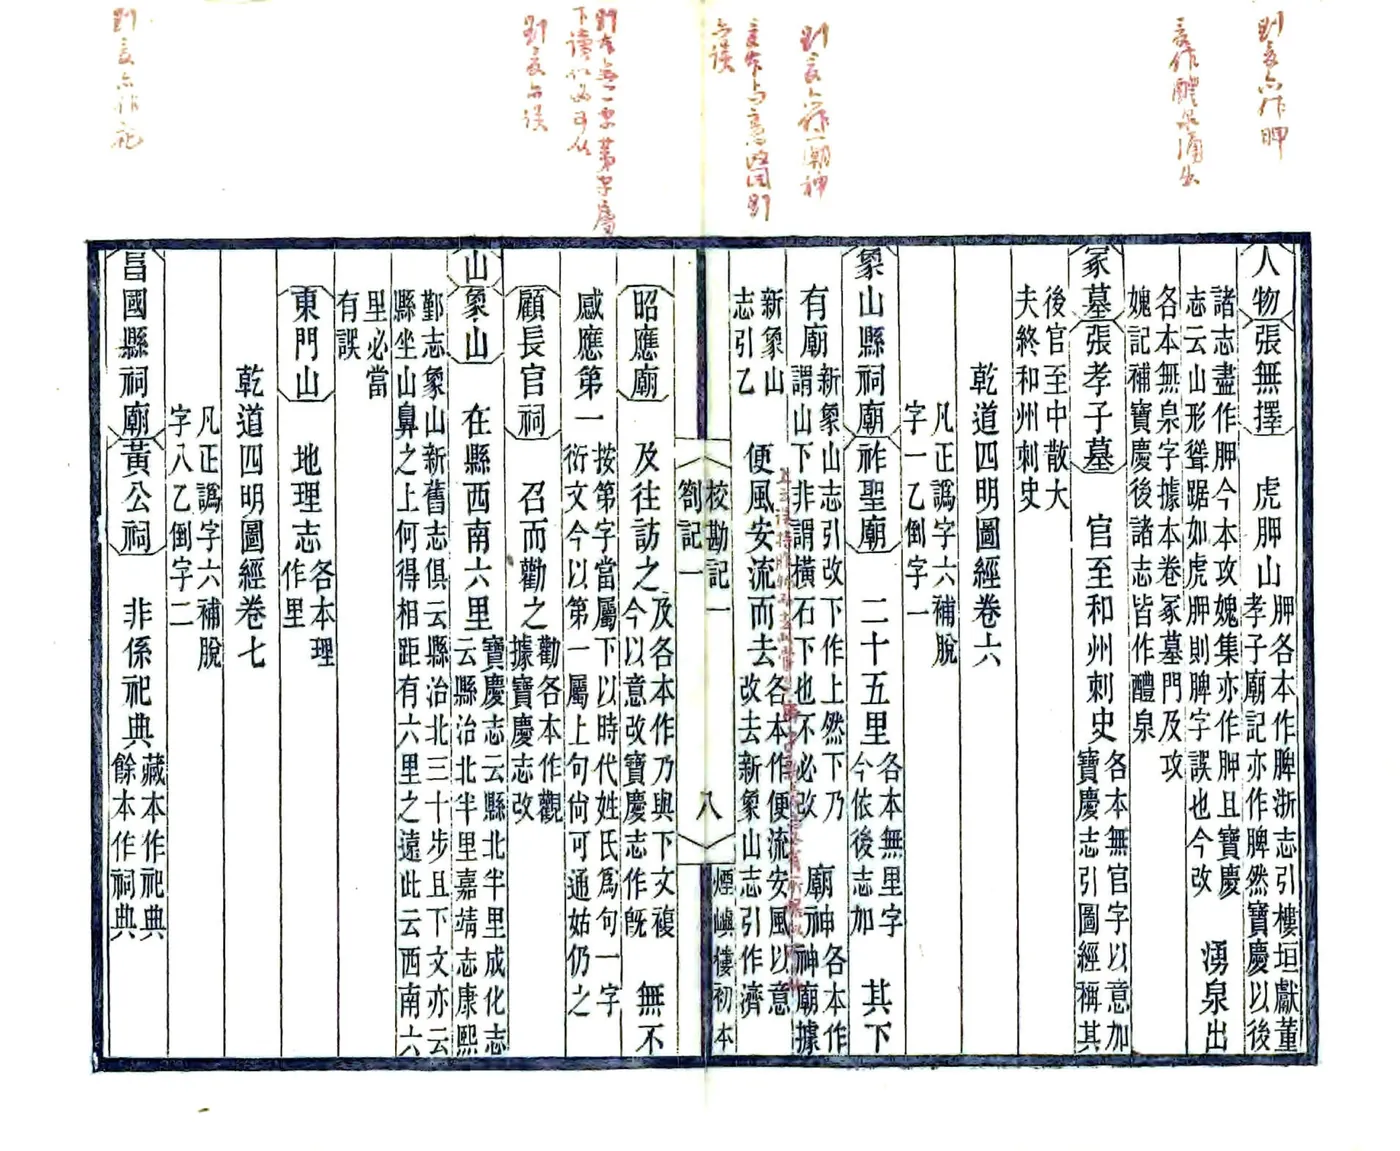 人物 張無擇 虎胛山 胛各本作脾浙志引樓垣獻董
孝子廟記亦作脾然寶慶以後
諸志盡作胛今本攻媿集亦作胛且寶慶
志云山形聳踞如虎胛則脾字誤也今改 湧泉出
各本無泉字據本卷冢墓門及攻
媿記補寶慶後諸志皆作醴泉
冢墓 張孝子墓 官至和州刺史 各本無官字以意加
寶慶志引圖經稱其
後官至中散大
夫終和州刺史
乾道四明圖經卷六
凡正譌字六補脫
字一乙倒字一
象山縣祠廟 祚聖廟 二十五里 各本無里字
今依後志加 其下
有廟 新象山志引改下作上然下乃
謂山下非謂橫石下也不必改 廟神 各本作
神廟據
新象山
志引乙 便風安流而去 各本作便流安風以意
改去新象山志引作濟
校勘記一
劄記一
八
煙嶼樓初本
昭應廟 及往訪之 及各本作乃與下文複
今以意改寶慶志作旣 無不
感應第一 按第字當屬下以時代姓氏爲句一字
衍文今以第一屬上句尙可通姑仍之
顧長官祠 召而勸之 勸各本作觀
據寶慶志改
山 象山 在縣西南六里 寶慶志云縣北半里成化志
云縣治北半里嘉靖志康熙
鄞志象山新舊志俱云縣治北三十步且下文亦云
縣坐山鼻之上何得相距有六里之遠此云西南六
里必當
有誤
東門山 地理志 各本理
作里
乾道四明圖經卷七
凡正譌字六補脫
字八乙倒字二
昌國縣祠廟 黃公祠 非係祀典 藏本作祀典
餘本作祠典
劉袁亦作胛
袁作醴泉湧出
劉袁亦作廟神